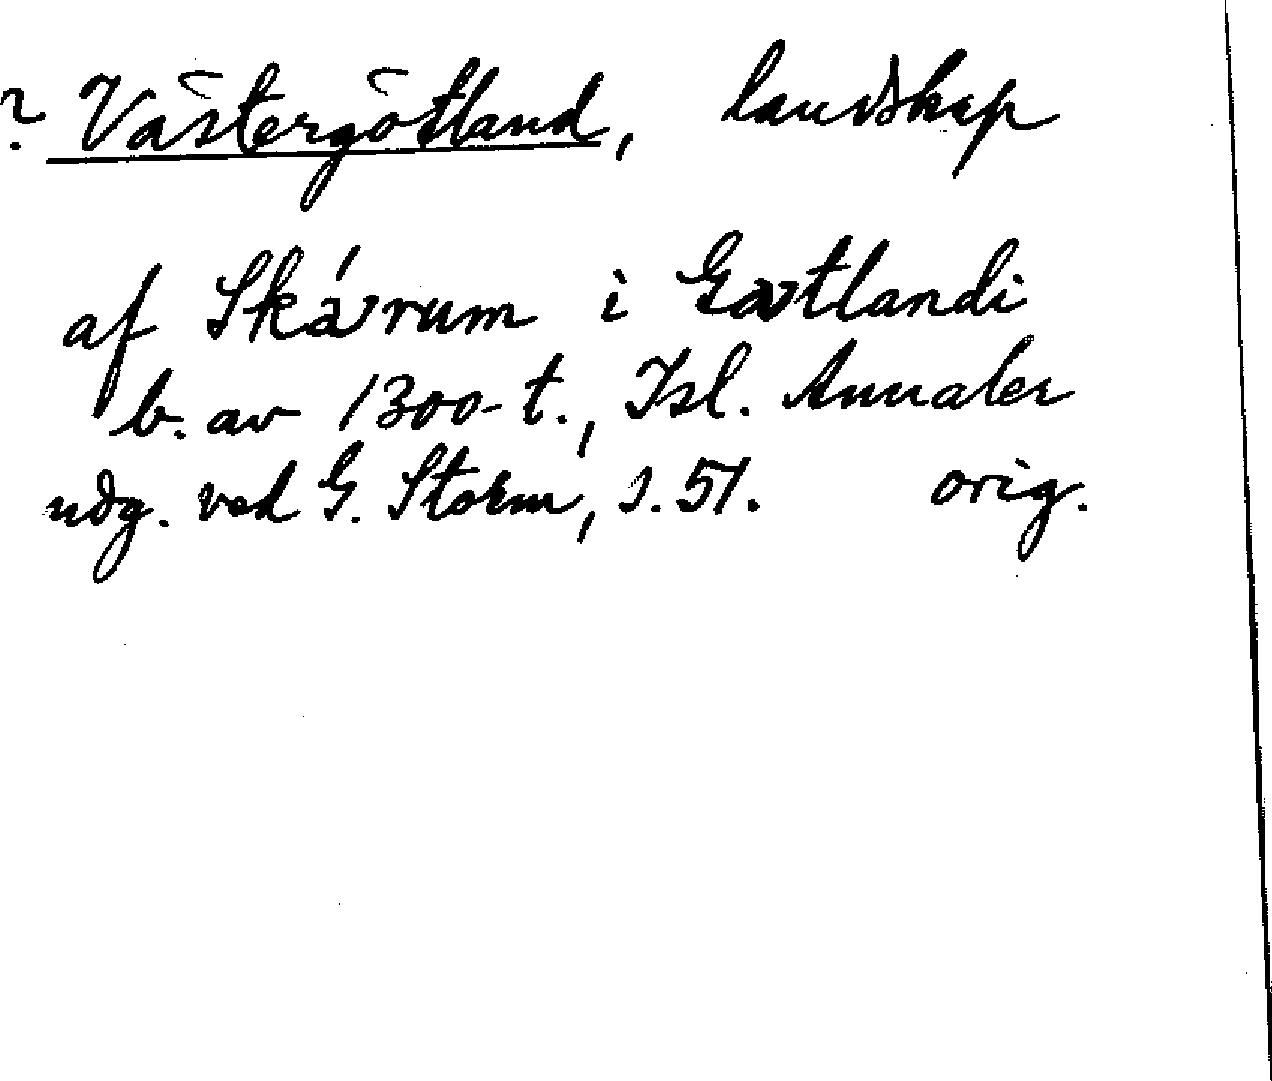 ? Västergötland, landskap
af Skárum i Gautlandi
b. av 1300-t., Isl. Annaler
udg. ved G. Storm, s. 51. orig.